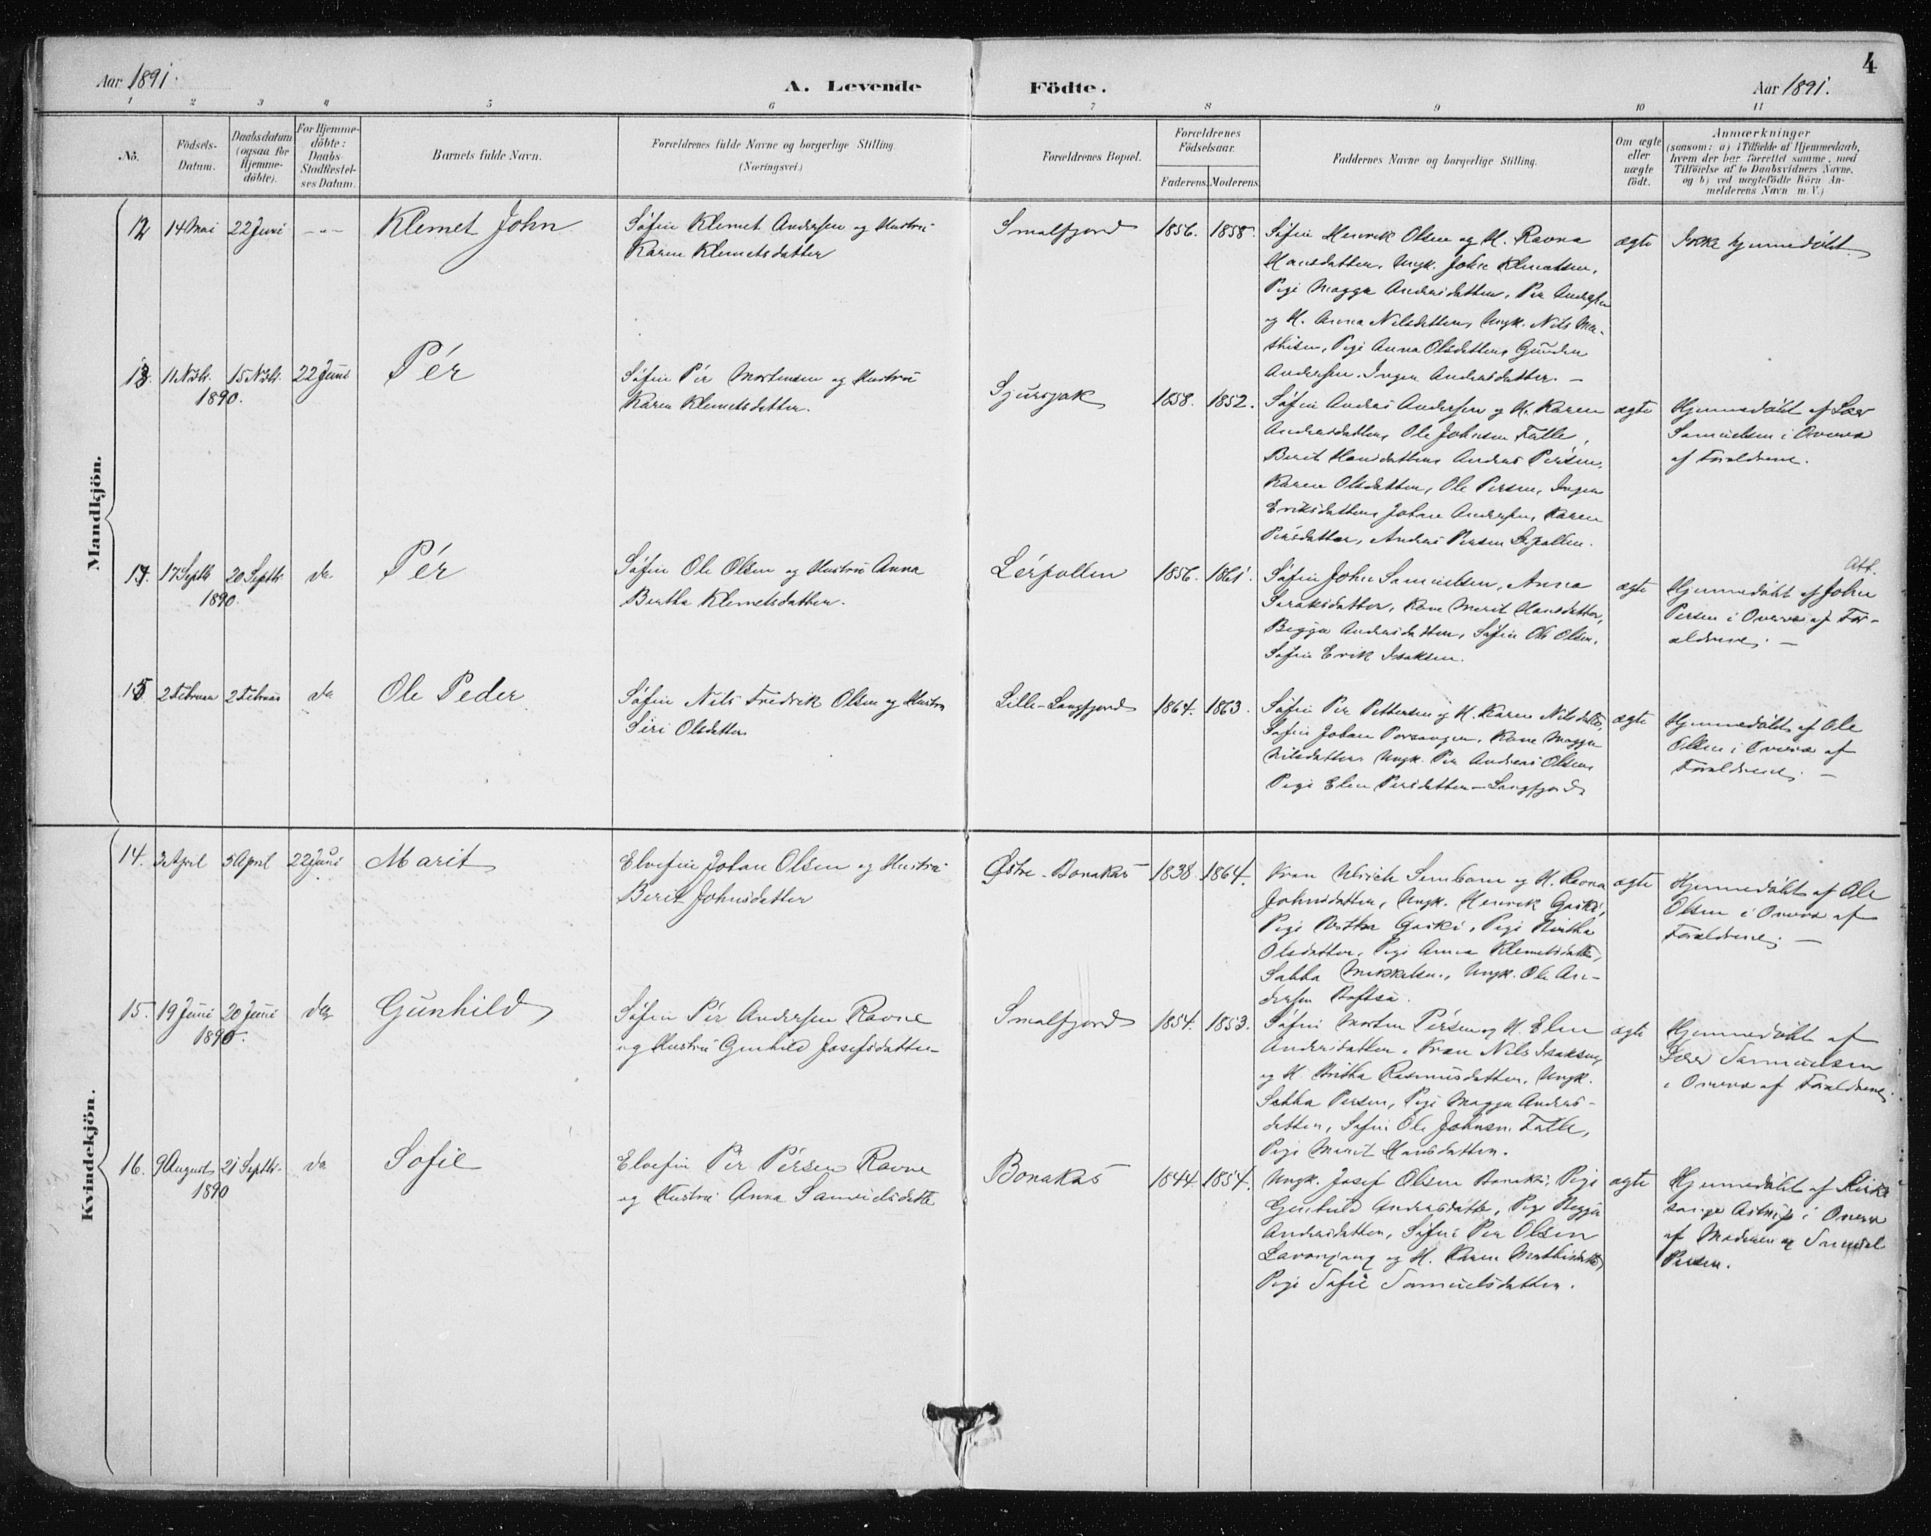 4
Aar 1891.
A. Levende Födte.
Aar 1891.
1 2 3 4 5 6 7 8 9 10 11
No.
Födsels-
Datum.
Daabsdatum
(ogsaa for
Hjemme-
döbte).
For Hjemme-
döbte:
Daabs-
Stadfæstel-
ses Datum.
Barnets fulde Navn.
Forældrenes fulde Navne og borgerlige Stilling
(Næringsvei.)
Forældrenes Bopæl.
Forældrenes
Födselsaar.
Faderens. Moderens.
Faddernes Navne og borgerlige Stilling.
Om ægte
eller
uægte
födt.
Anmærkninger
(saasom: a) i Tilfælde af Hjemmedaab,
hvem der har forrettet samme, med
Tilföielse af to Daabsvidners Navne,
og b) ved uægtefödte Börn An-
melderens Navn m. V.)
Mandkjön.
12 14 Mai 22 Juni -"- Klemet John
Søfin Klemet Andersen og Hustru
Karen Klemetsdatter
Smalfjord 1856. 1858.
Søfin Henrik Olsen og H. Ravna
Hansdatter, Ungk. John Klemetsen,
Pige Magga Andersdatter, Per Andersen
og H. Anna Nilsdatter, Ungk. Nils Ma-
thisen, Pige Anna Olsdatter, Gunder
Andersen. Inger Andersdatter. -
ægte
Ikke hjemmedøbt.
13. 11 Novbr. 15 Novbr. 22 Juni Pér
1890.
Søfin Pér Mortensen og Hustru
Karen Klemetsdatter.
Sjursjok 1858. 1852.
Søfin Anders Andersen og H. Karen
Andersdatter, Ole Johnsen Falle,
Berit Hansdatter, Anders Pérsen,
Karen Olsdatter, Ole Persen, Inger
Eriksdatter, Johan Andersen, Karen
Pérsdatter, Anders Persen
ægte
Hjemmedøbt af
Samuelsen i Overv.
af Forældrene.
17 Septb 20 Septbr do Pér
1890.
Søfin Ole Olsen og Hustru Anna
Bertha Klemetsdatter.
Lérpollen 1856. 1861.
Søfin John Samuelsen, Anna
Kone Merit Hansdatter,
Begga Andersdatter, Søfin Ole Olsen,
Søfin Erik Isaksen.
ægte
Att.
Hjemmedøbt af John
Persen i Overv. af For-
ældrene. -
15 2 Februar 2 Februar do Ole Peder
Søfin Nils Fredrik Olsen og Hustru
Siri Olsdatter
Lille-Langfjord 1864. 1863.
Søfin Per Pettersen og H. Karen Nilsdatter,
Søfin Johan Porsanger, Kone Magga
Nilsdatter Ungk. Per Anders Olsen,
Pige Elen Persdatter - Langfjord
ægte
Hjemmedøbt af Ole
Olsen i Overv. af
Forældrene. -
Kvindekjön.
14. 3 April 5 April 22 Juni Marit
Elvefin Johan Olsen og Hustru
Berit Johnsdatter
Østre-Bonakas 1838 1864.
Kvæn Ulrich og H. Ravna
Johnsdatter, Ungk. Henrik Gaski,
Pige Gaski, Pige Birtha
Olsdatter, Pige Anna Klemetsdatter,
Sabba Mikkelsen, Ungk. Ole An-
dersen Boftsa.
ægte
Hjemmedøbt af Ole
Olsen i Overv. af
Forældrene. -
15. 19 Juni 20 Juni do Gunhild
1890.
Søfin Pér Andersen Ravne
og Hustru Gunhild Josefsdatter
Smalfjord 1854. 1853.
Søfin Morten Pérsen og H. Elen
Andersdatter, Kvæn Nils Isaksen
og H. Britha Rasmusdatter, Ungk.
Sabba Persen, Pige Magga Anders-
datter, Søfin Ole Johnsen Falle,
Pige Merit Hansdatter.
ægte
Hjemmedøbt af
Samuelsen
i Overv. af Forældrene.
16. 9 August 21 Septbr. do Sofie
1890
Elvefin Per Pérsen Ravne
og Hustru Anna Samuelsdatter
Bonakas 1844 1854.
Ungk. Josef Olsen Bonakas, Pige
Gunhild Andersdatter, Pige Begga
Andersdatter, Søfin Per Olsen
og H. Karen Mathisdatter,
Pige Sofie Samuelsdatter.
ægte
Hjemmedøbt af Kirke-
sanger Astrup i Overv.
af Moderen og Samuel
Persen.